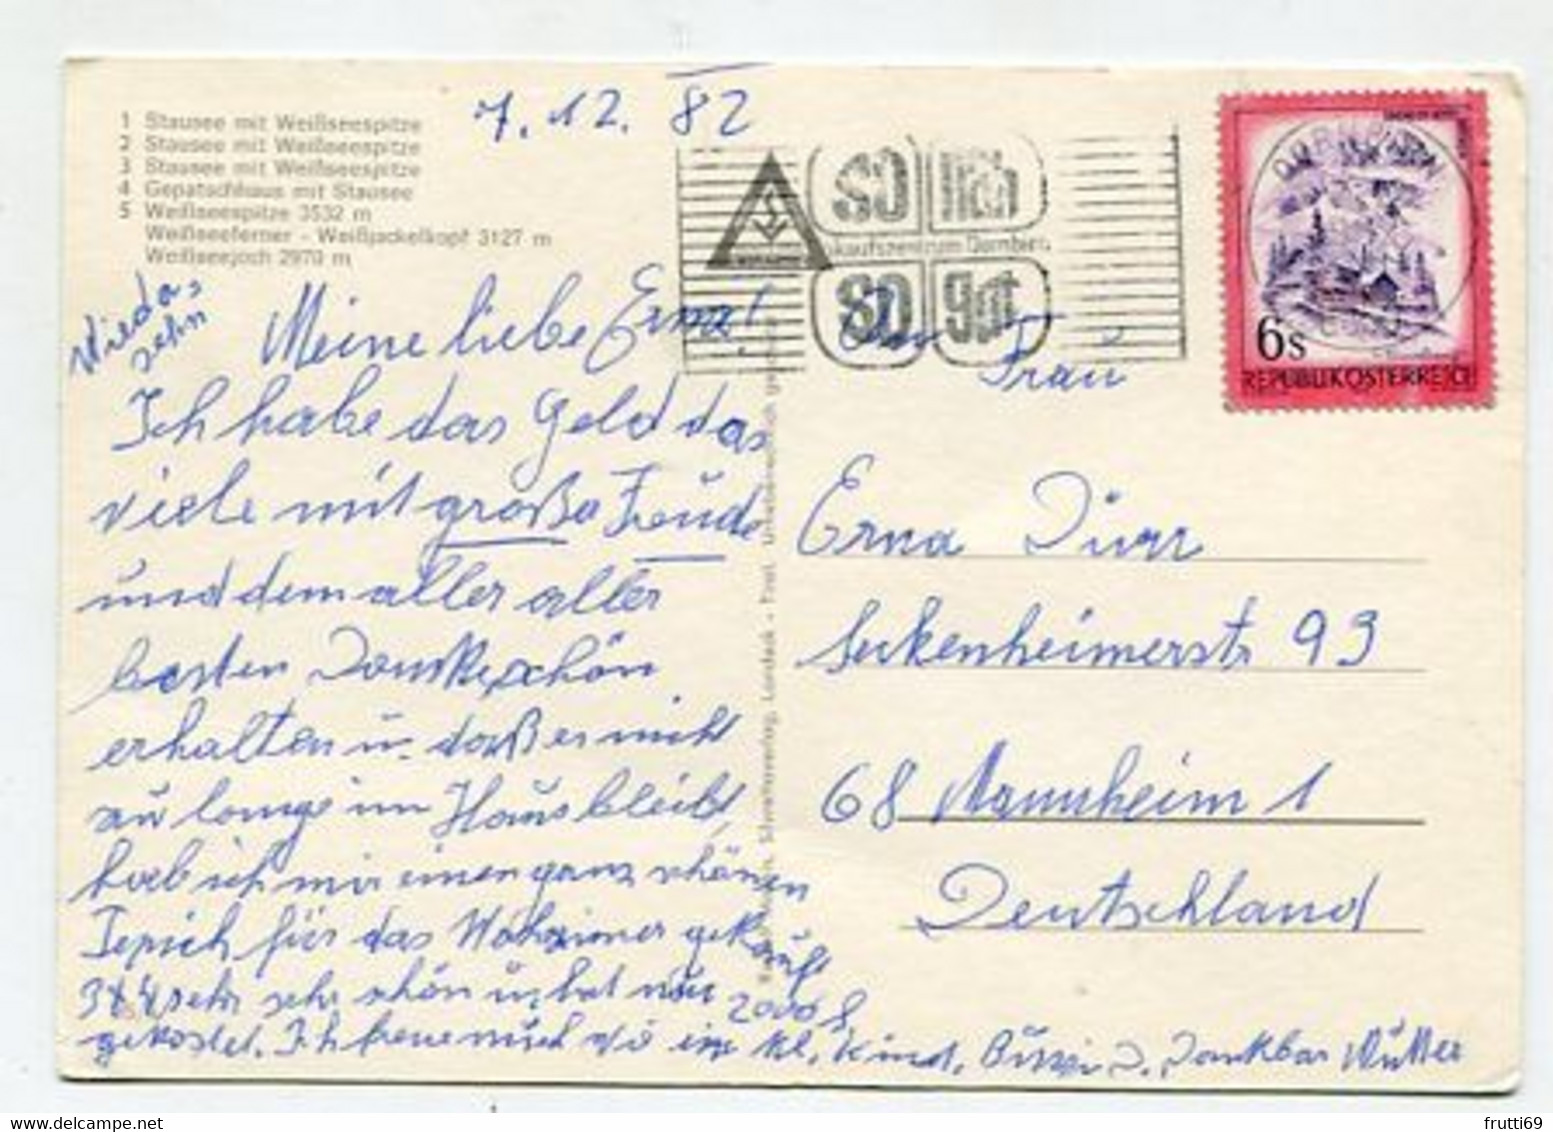 1 Stausee mit Weißseespitze
2 Stausee mit Weißseespitze
3 Stausee mit Weißseespitze
4 Gepatschhaus mit Stausee
5 Weißseespitze 3532 m
Weißseeferner - Weißjackelkopf 3127 m
Weißseejoch 2970 m
7.12. 82
Wieda
sehn
Meine liebe Erna!
Ich habe das Geld das
viele mit große Freude
und dem aller aller
besten Dankeschön
erhalten u. daß es nicht
zu lange im Haus bleibt,
hab ich mir einen ganz schönen
Tepich für das Wohzimer gekauft
3x4 sehr sehr schön u. hat nur
2000 S
gekostet. Ich freue mich wie ein kl. Kind. Bussi D. Dankbar Mutter
so nah
kaufszentrum Dornbirn
so gut
DORNBIRN
6s
REPUBLIK ÖSTERREICH
Frau
Erna Dürr
Seckenheimerstr 93
68 Mannheim 1
Deutschland
frutti69